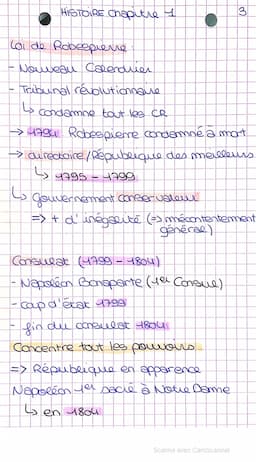 HISTOIRE Chapitre 1
3
Loi de Robespierre :
- Nouveau Calendrier
- Tribunal révolutionnaire
↳ condamne tout les CR
→ 1794 Robespierre condamné à mort
→ directoire/République des meilleurs
↳ 1795 - 1799
↳ Gouvernement conservateur
=> + d'inégalité (=> mécontentement
général)
Consulat (1799 - 1804)
- Napoléon Bonaparte (1er Consul)
- coup d'état 1799
- fin du consulat 1804
Concentre tout les pouvoirs
=> République en apparence
Napoléon 1er sacré à Notre Dame
↳ en 1804
Scanné avec CamScanner